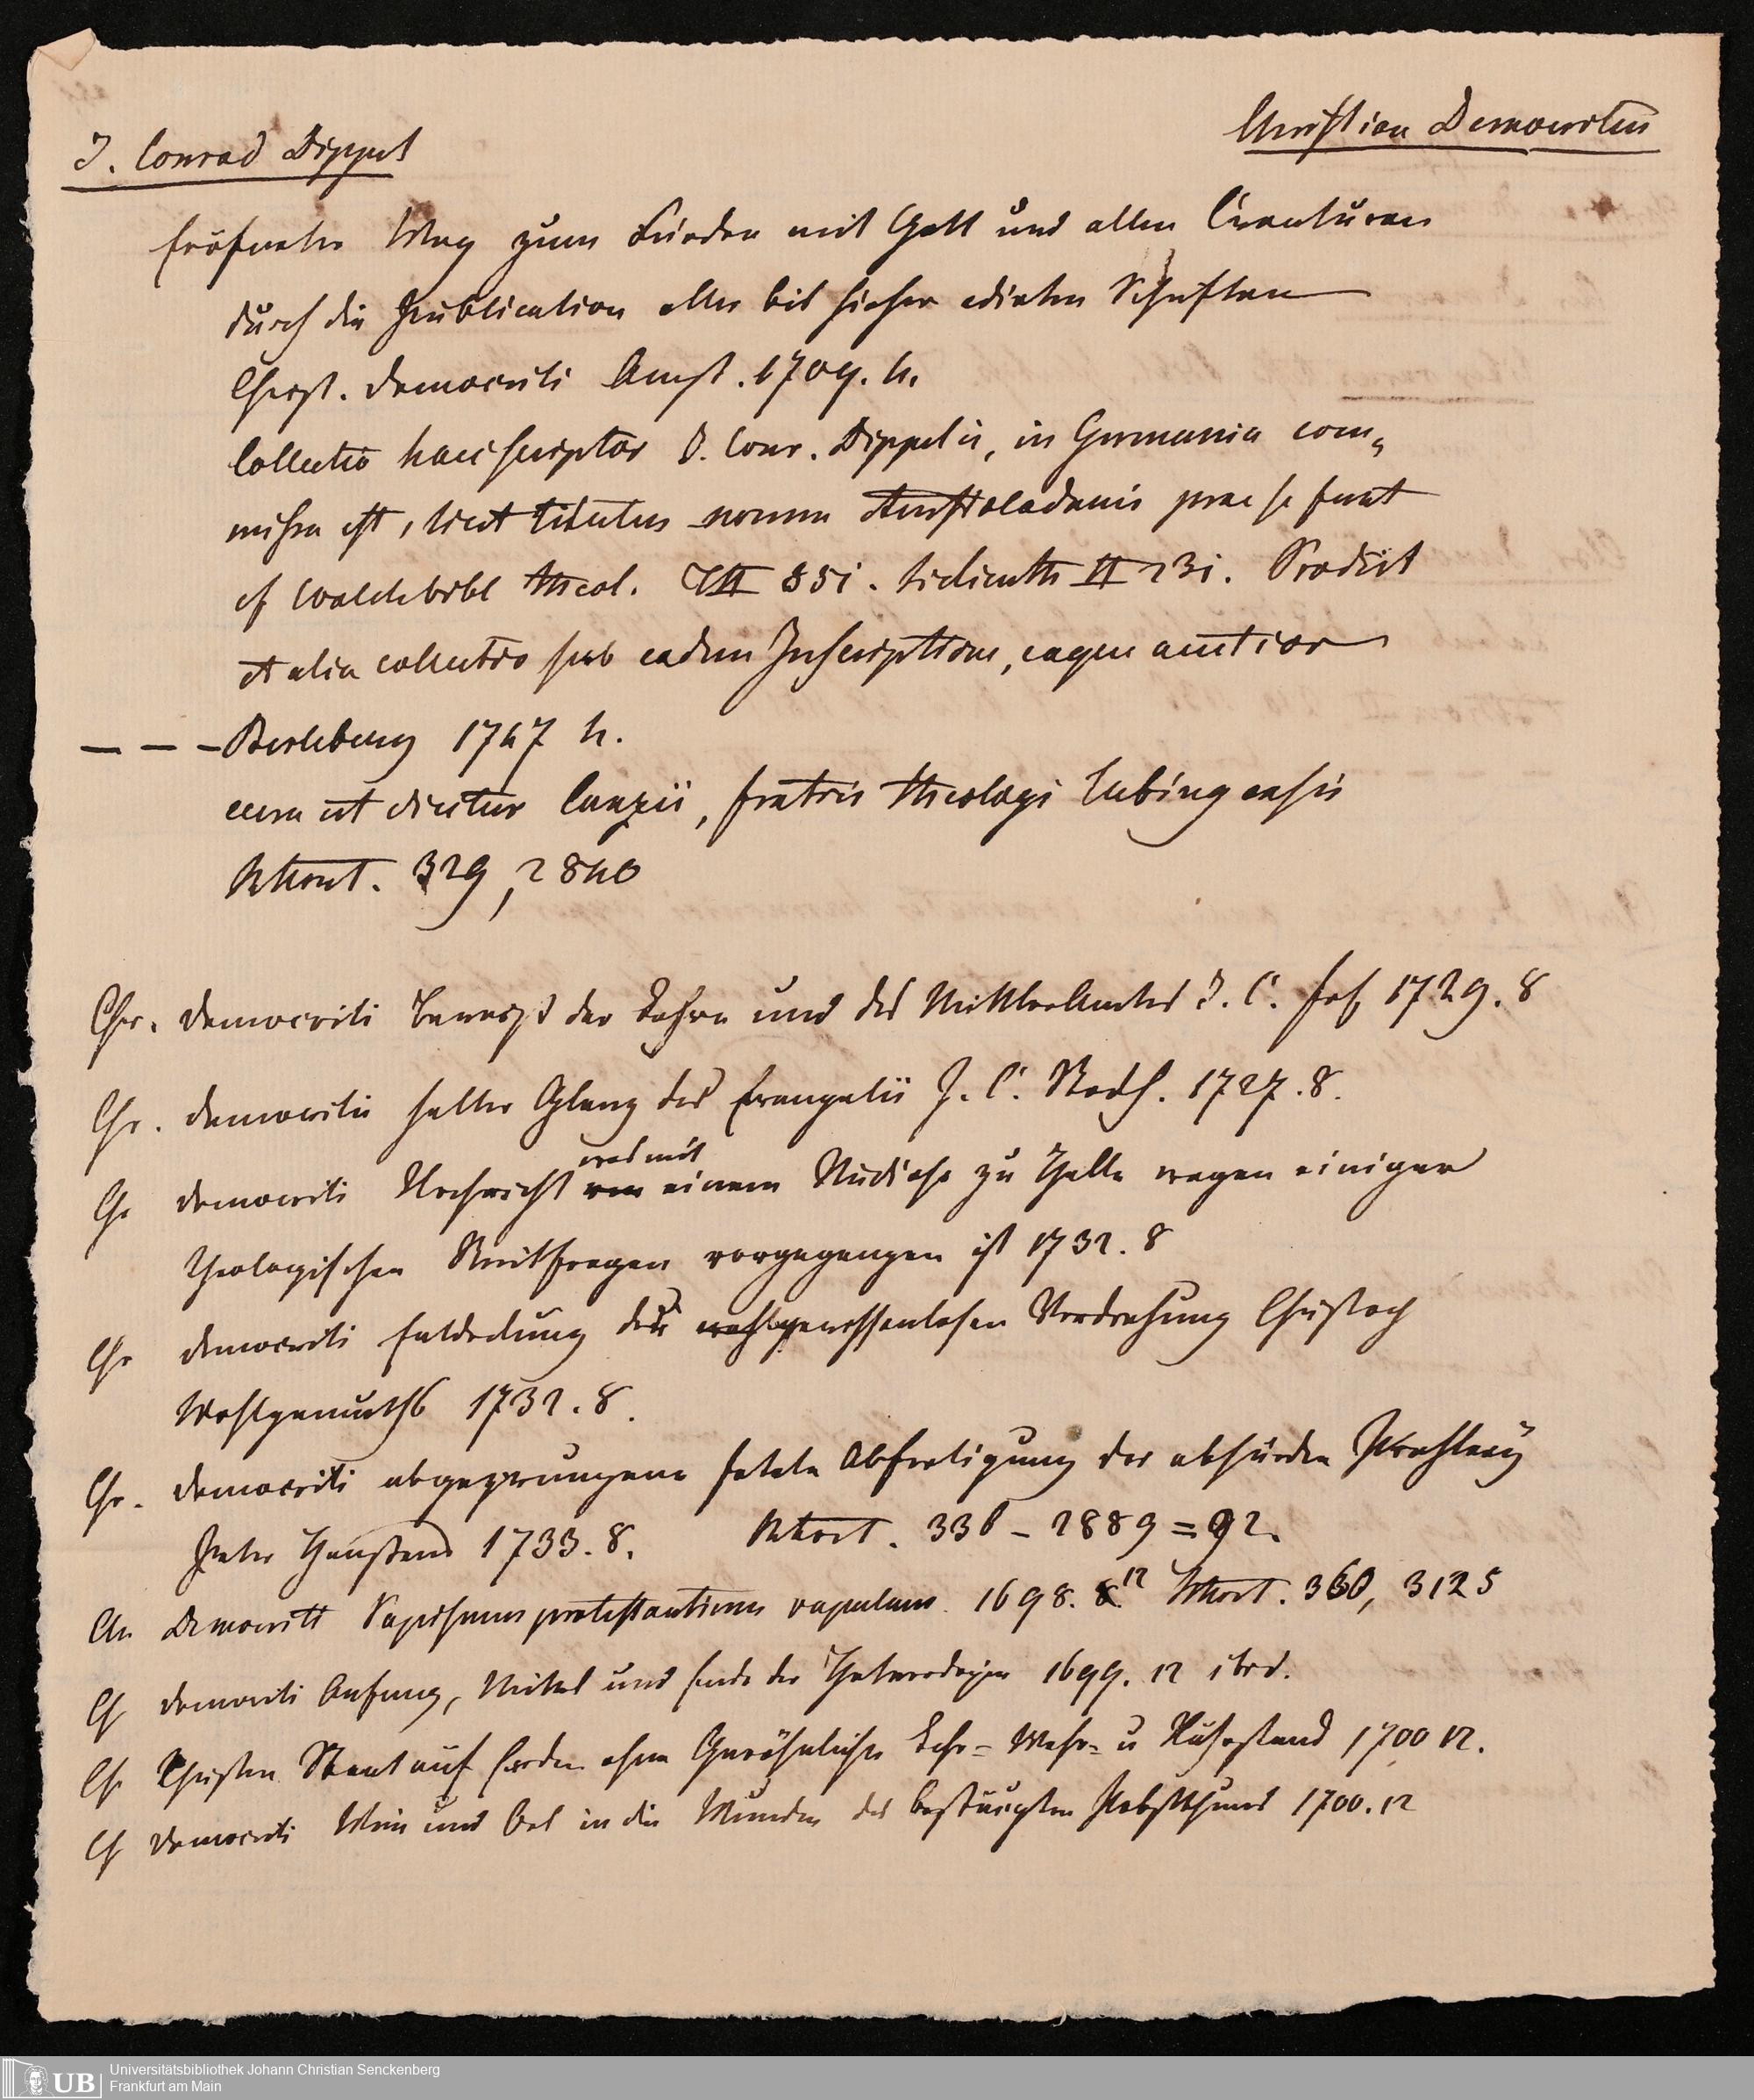 J. Conrad Dippel
Christian Democritus
Eröfneter Weg zum Frieden mit Gott und allen Creaturen
durch die Publication aller bis hieher edirten Schriften
Christ. Democriti Amst. 1709. 4.
Collectio haec scriptor J. Conr. Dippelii, in Germania com„
missa est, licet titulus nomen Amstelodamis prae se ferat
cf Walch bibl theol. 851. II 231. Prodiit
et alia collectio sub eadem Inscriptione, eaque auctior
— — — Berleburg 1747 4.
cura ut dicitur Canzii, fratris theologi Tubingensis
Uthont. 329, 2840
Chr. Democriti Beweiß der Lehre und des MittlerAmtes J. C. 1729. 8
Chr. Democriti heller Glanz des Evangelii J. C. Stockh. 1727. 8.
was mit
Chr Democriti Nachricht von einem Medico zu Halle wegen einiger
Theologischen Streitfragen vorgegangen ist 1732. 8
Chr Democriti Entdeckung der gewissenlosen Verdrehung Christoph
Wohlgemuths 1732. 8.
Chr. Democriti abgezwungene fatale Abfertigung der absurden Prahlerey
Peter Hanßens 1733. 8. Uthont. 336 – 2889 = 92.
Chr Democriti Papismus protestantium vapulans. 1698. 8. 12 Uthont. 360, 3125
Ch Democriti Anfang, Mittel und Ende der Heterodoxie 1699. 12 ibid.
Ch. Christen Staat auf Erden ohne Gewöhnlichen Lehr= Wehr= u Nährstand 1700 12.
Ch Democriti Wein und Oel in die Wunden des bestäupten Pabstthums 1700. 12
UB Universitätsbibliothek Johann Christian Senckenberg
Frankfurt am Main